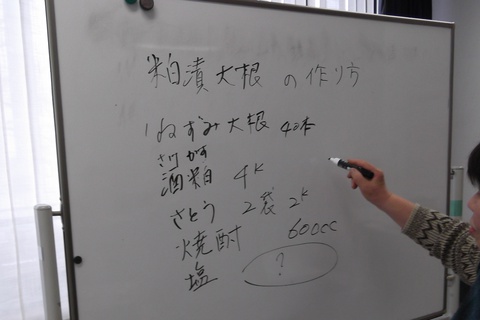 粕漬大根の作り方
ねずみ大根 40本
さけかす
酒粕 4K
さとう 2袋 2K
焼酎 600cc
塩 ?